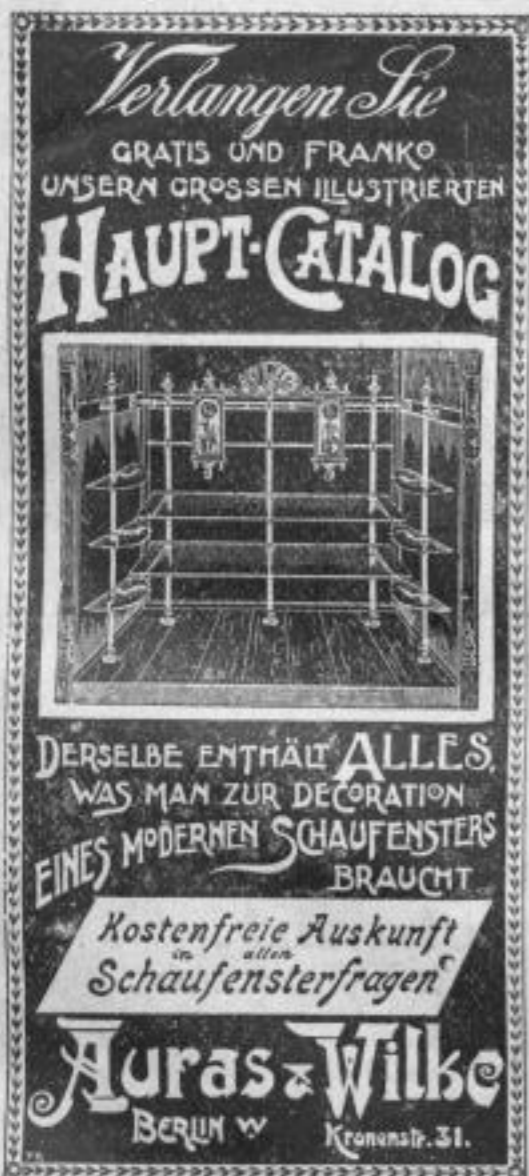 Verlangen Sie
GRATIS UND FRANKO
UNSERN GROSSEN ILLUSTRIERTEN
HAUPT-CATALOG
DERSELBE ENTHÄLT ALLES,
WAS MAN ZUR DECORATION
EINES MODERNEN SCHAUFENSTERS
BRAUCHT
Kostenfreie Auskunft
in allen
Schaufensterfragen
Auras & Wilke
BERLIN W Kronenstr. 31.